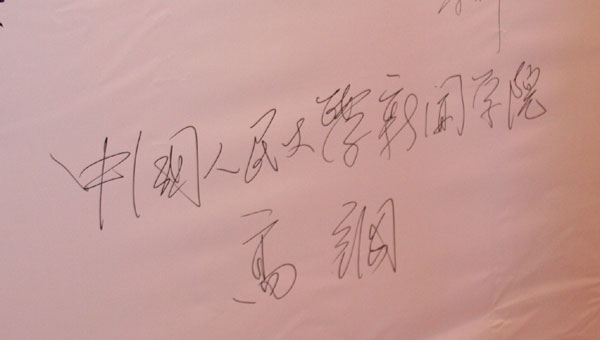 中国人民大学新闻学院
高钢